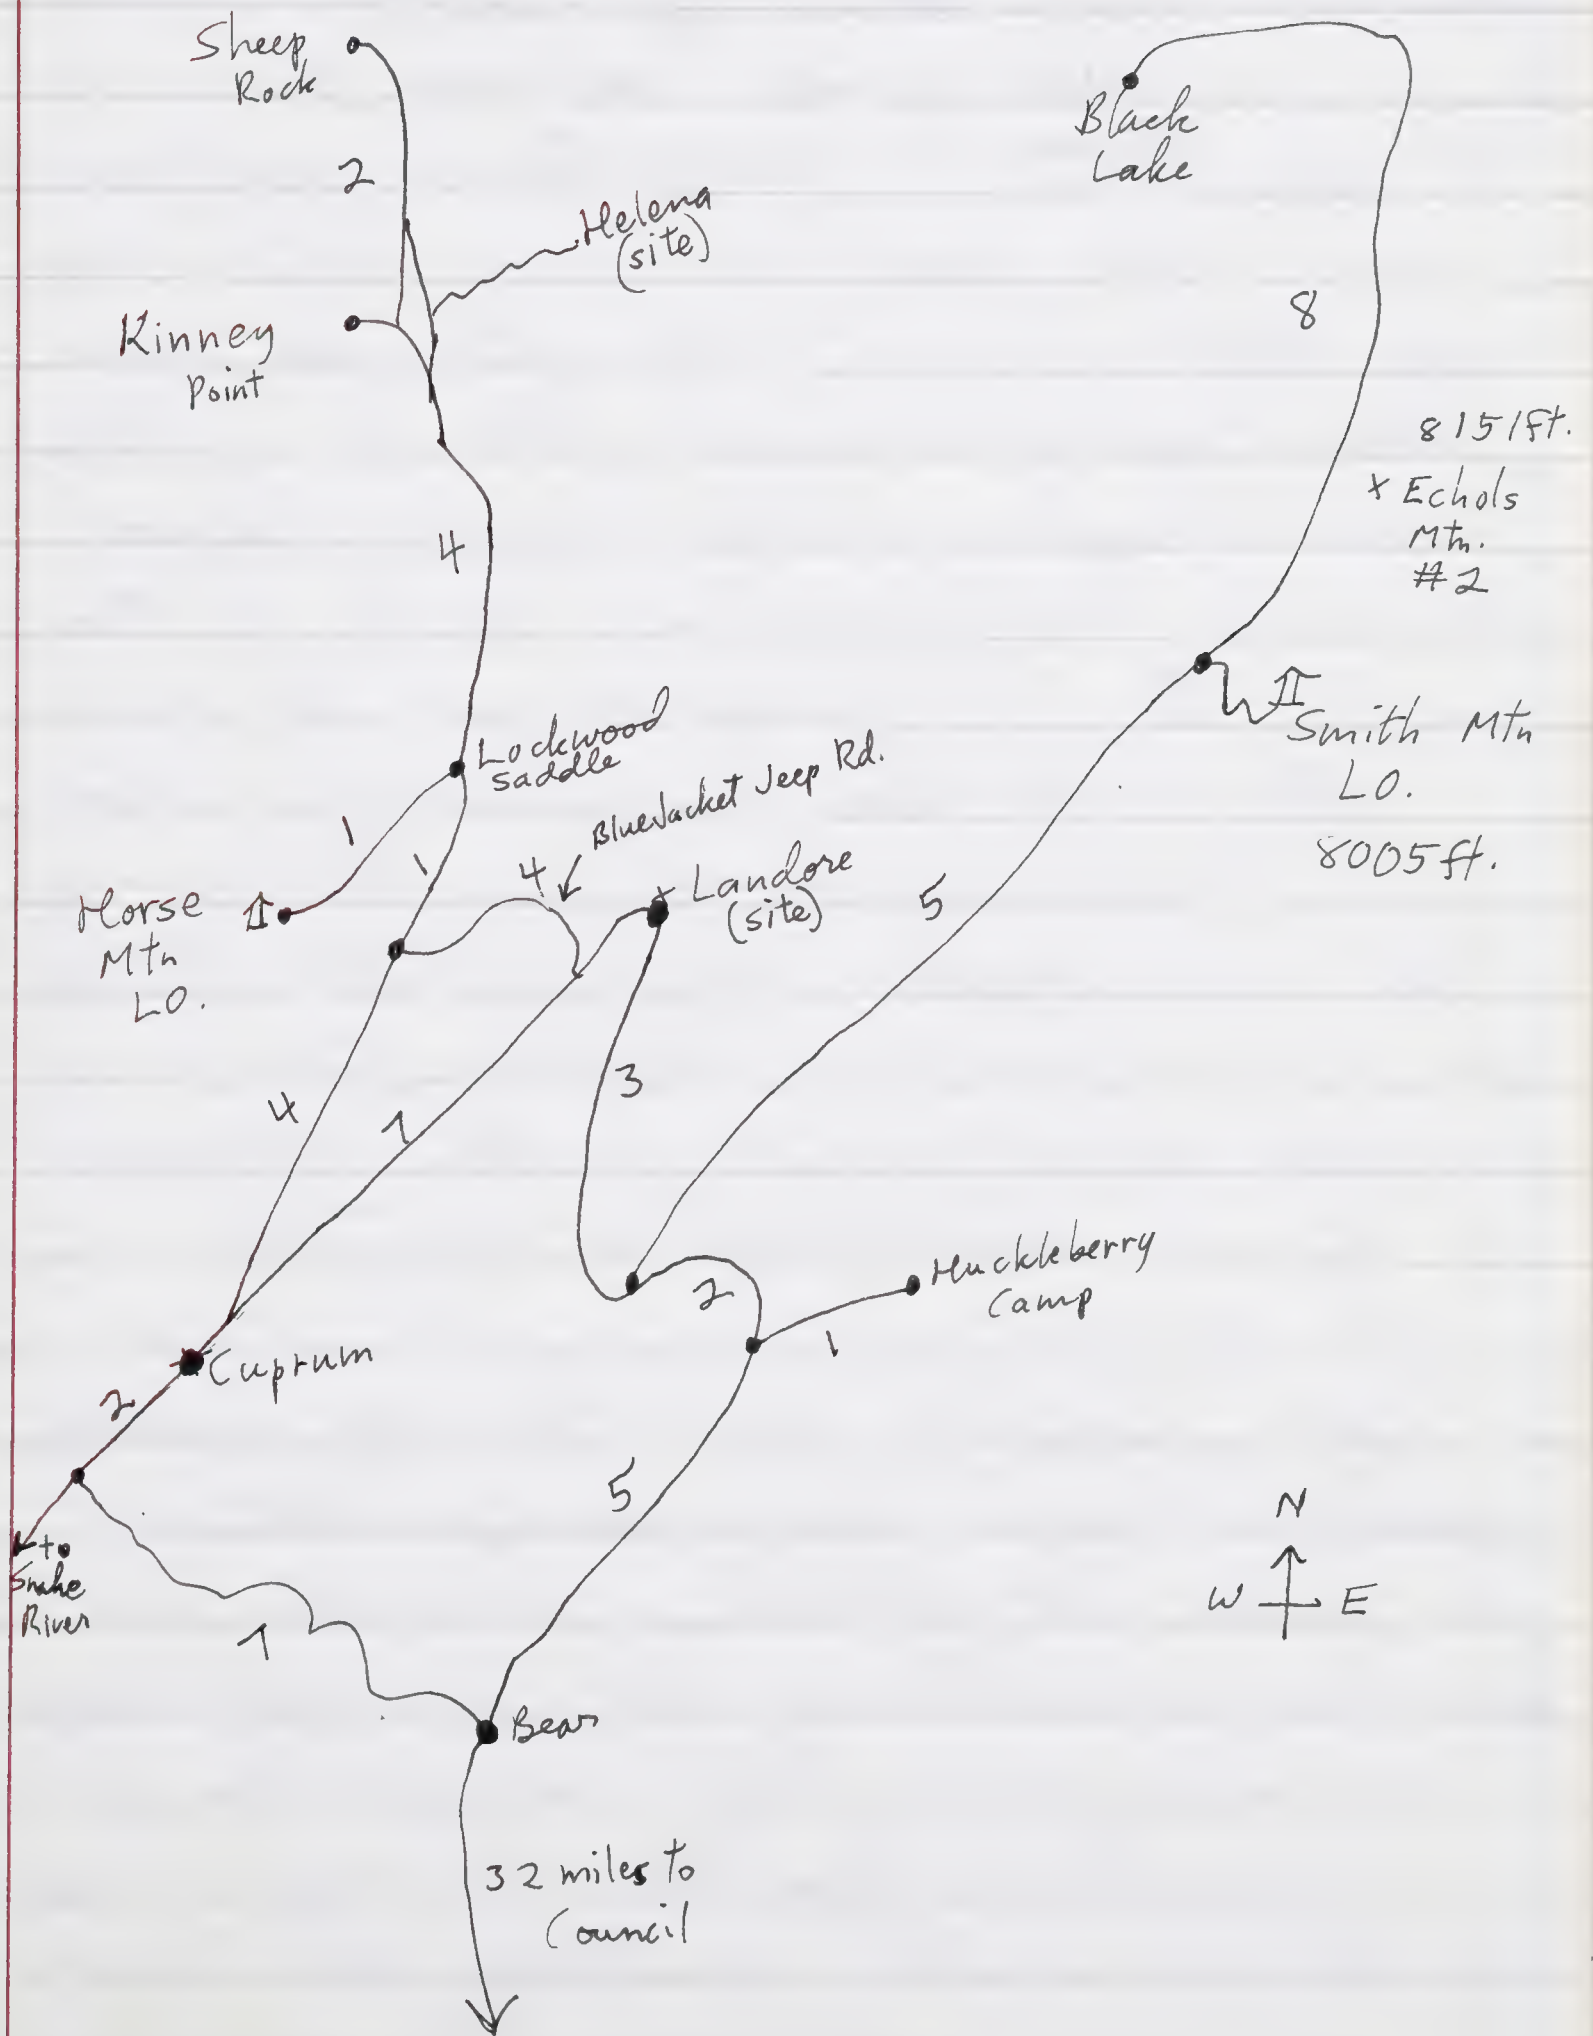 Sheep
Rock
Black
Lake
2
Helena
(site)
8
Kinney
Point
8151ft.
x Echols
Mtn.
#2
4
Smith Mtn
LO.
8005ft.
Lockwood
Saddle
BlueJacket Jeep Rd.
1
1
4
Landore
(site)
5
Horse
Mtn
LO.
3
4
7
Huckleberry
Camp
2
1
Cuprum
2
5
N
W E
to
Snake
River
7
Bear
32 miles to
Council